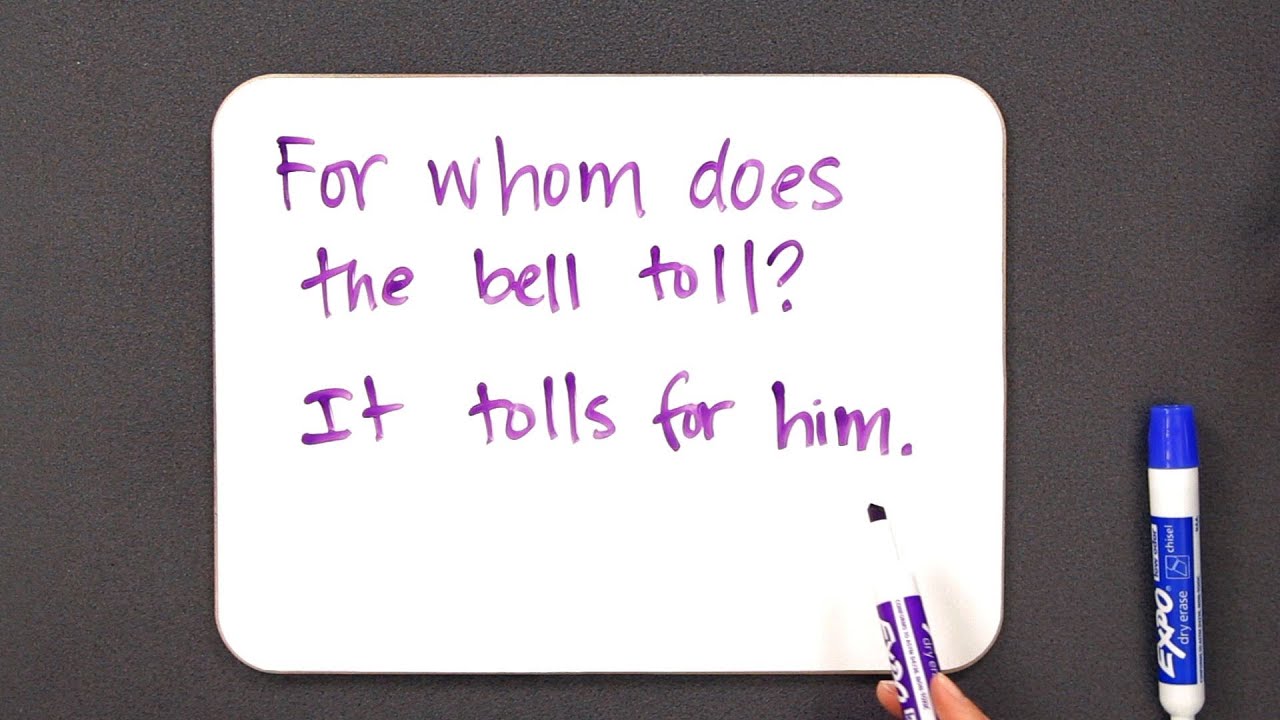 For whom does
the bell toll?
It tolls for him.
EXPO
dry erase
low odor
chisel
EXPO
dry er